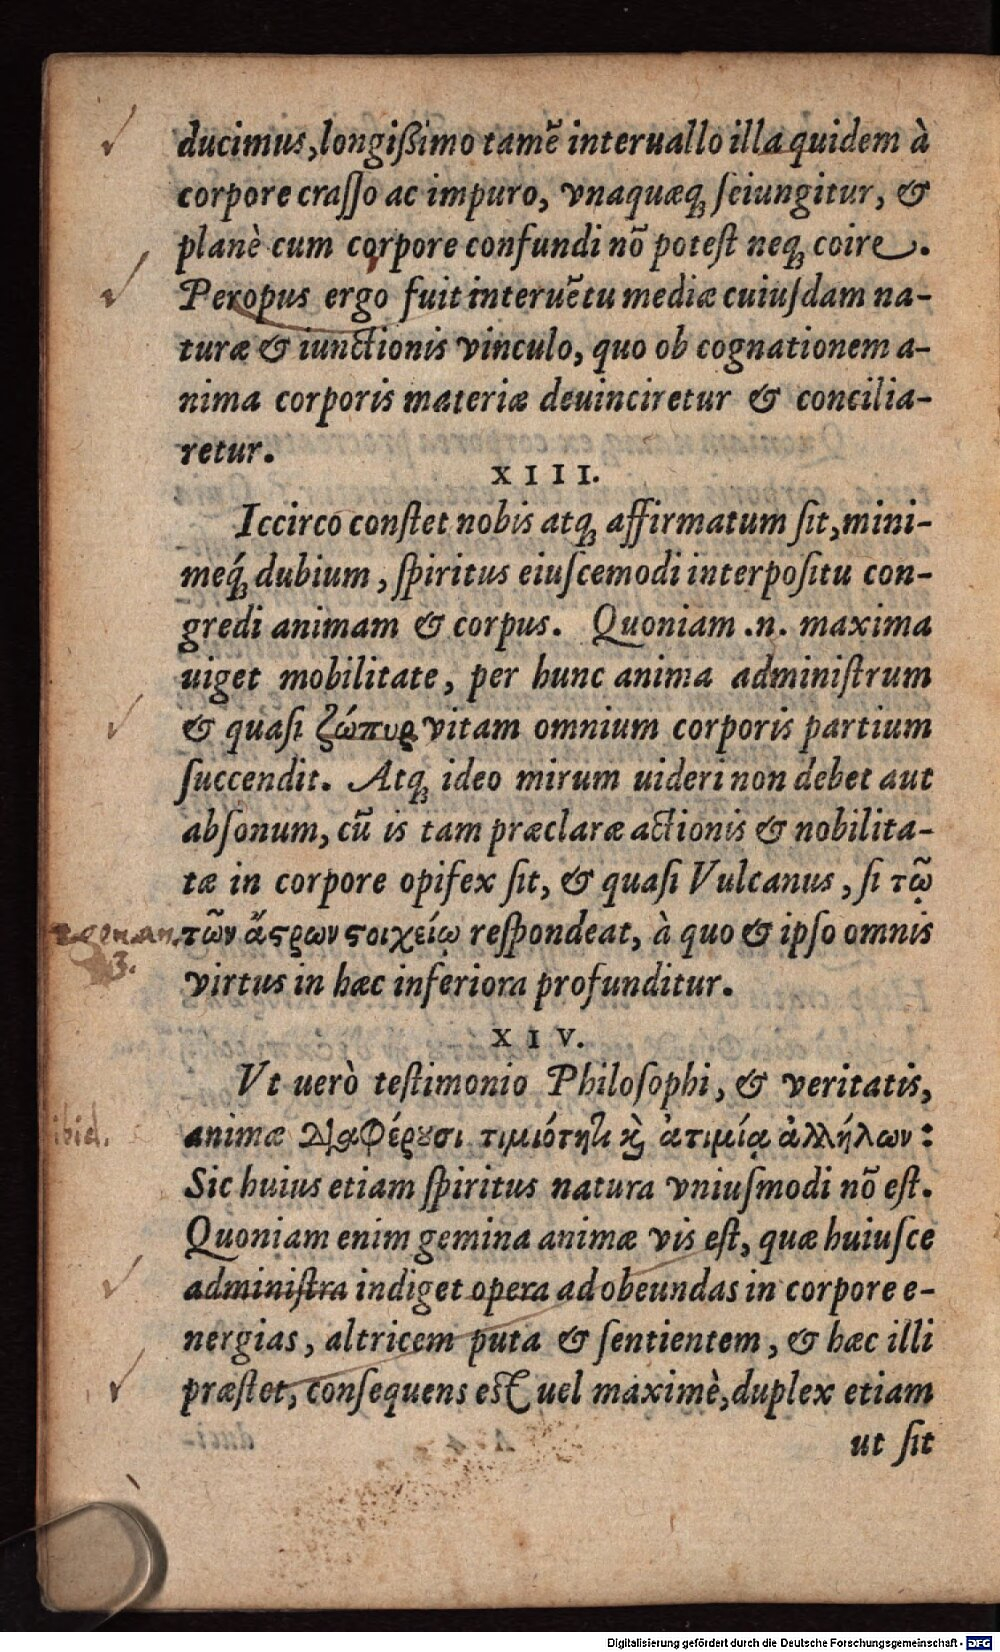 ducimus, longißimo tamẽ interuallo illa quidem à
corpore craſſo ac impuro, vnaquæq; ſeiungitur, &
planè cum corpore confundi nõ poteſt neq; coire.
Peropus ergo fuit interuẽtu mediæ cuiuſdam na-
turæ & iunctionis vinculo, quo ob cognationem a-
nima corporis materiæ deuinciretur & concilia-
retur.
XIII.
Iccirco conſtet nobis atq; affirmatum ſit, mini-
meq́; dubium, ſpiritus eiuſcemodi interpoſitu con-
gredi animam & corpus. Quoniam .n. maxima
uiget mobilitate, per hunc anima adminiſtrum
& quaſi ζώπυρ vitam omnium corporis partium
ſuccendit. Atq; ideo mirum uideri non debet aut
abſonum, cũ is tam præclaræ actionis & nobilita-
tæ in corpore opifex ſit, & quaſi Vulcanus, ſi τῷ
3.
τῶν ἄϛρων ϛοιχείῳ reſpondeat, à quo & ipſo omnis
virtus in hæc inferiora profunditur.
XIV.
Vt uerò teſtimonio Philoſophi, & veritatis,
ibid.
animæ Διαφέρȣσι τιμιότητι ϗ̀ ἀτιμίᾳ ἀλλήλων:
Sic huius etiam ſpiritus natura vniuſmodi nõ eſt.
Quoniam enim gemina animæ vis eſt, quæ huiuſce
adminiſtra indiget opera ad obeundas in corpore e-
nergias, altricem puta & ſentientem, & hæc illi
præſtet, conſequens eſt uel maximè, duplex etiam
ut ſit
Digitalisierung gefördert durch die Deutsche Forschungsgemeinschaft - DFG